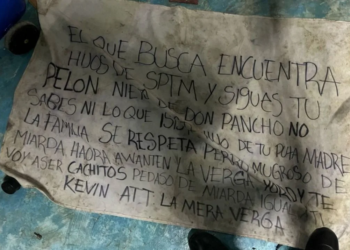 EL QUE BUSCA ENCUENTRA
HIJOS DE SPTM Y SIGUAS TU
PELON NIER DE DON PANCHO NO
SABES NI LO QUE ISISTE HIJO DE TU PUTA MADRE
LA FAMILIA SE RESPETA PERRO MUGROSO DE
MIARDA HAORA AWANTEN LA VERGA YO A TE
VOY ASER CACHITOS PEDASO DE MIARDA IGUAL TI
KEVIN ATT. LA MERA VERGA